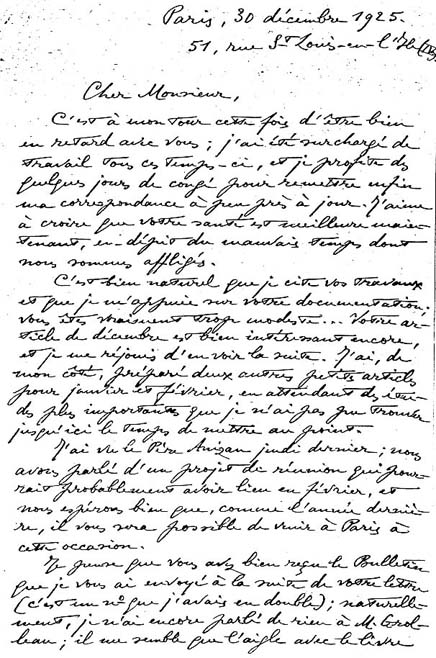 Paris, 30 décembre 1925.
51, rue St Louis-en-l'Ile (IVe)
Cher Monsieur,
C'est à mon tour cette fois d'être bien
en retard avec vous ; j'ai été surchargé de
travail tous ces temps-ci, et je profite des
quelques jours de congé pour remettre enfin
ma correspondance à peu près à jour. J'aime
à croire que votre santé est meilleure main-
tenant, en dépit du mauvais temps dont
nous sommes affligés.
C'est bien naturel que je cite vos travaux
et que je m'appuie sur votre documentation ;
vous êtes vraiment trop modeste... Votre ar-
ticle de décembre est bien intéressant encore,
et je me réjouis d'en voir la suite. J'ai, de
mon côté, préparé deux autres petits articles
pour janvier et février, en attendant des étu-
des plus importantes que je n'ai pas pu trouver
jusqu'ici le temps de mettre au point.
J'ai vu le Père Anizan jeudi dernier ; nous
avons parlé d'un projet de réunion qui pour-
rait probablement avoir lieu en février, et
nous espérons bien que, comme l'année derniè-
re, il vous sera possible de venir à Paris à
cette occasion.
Je pense que vous avez bien reçu le Bulletin
que je vous ai envoyé à la suite de votre lettre
(c'est un no que j'avais en double) ; naturelle-
ment, je n'ai encore parlé de rien à M.
; il me semble que l'aigle avec le livre